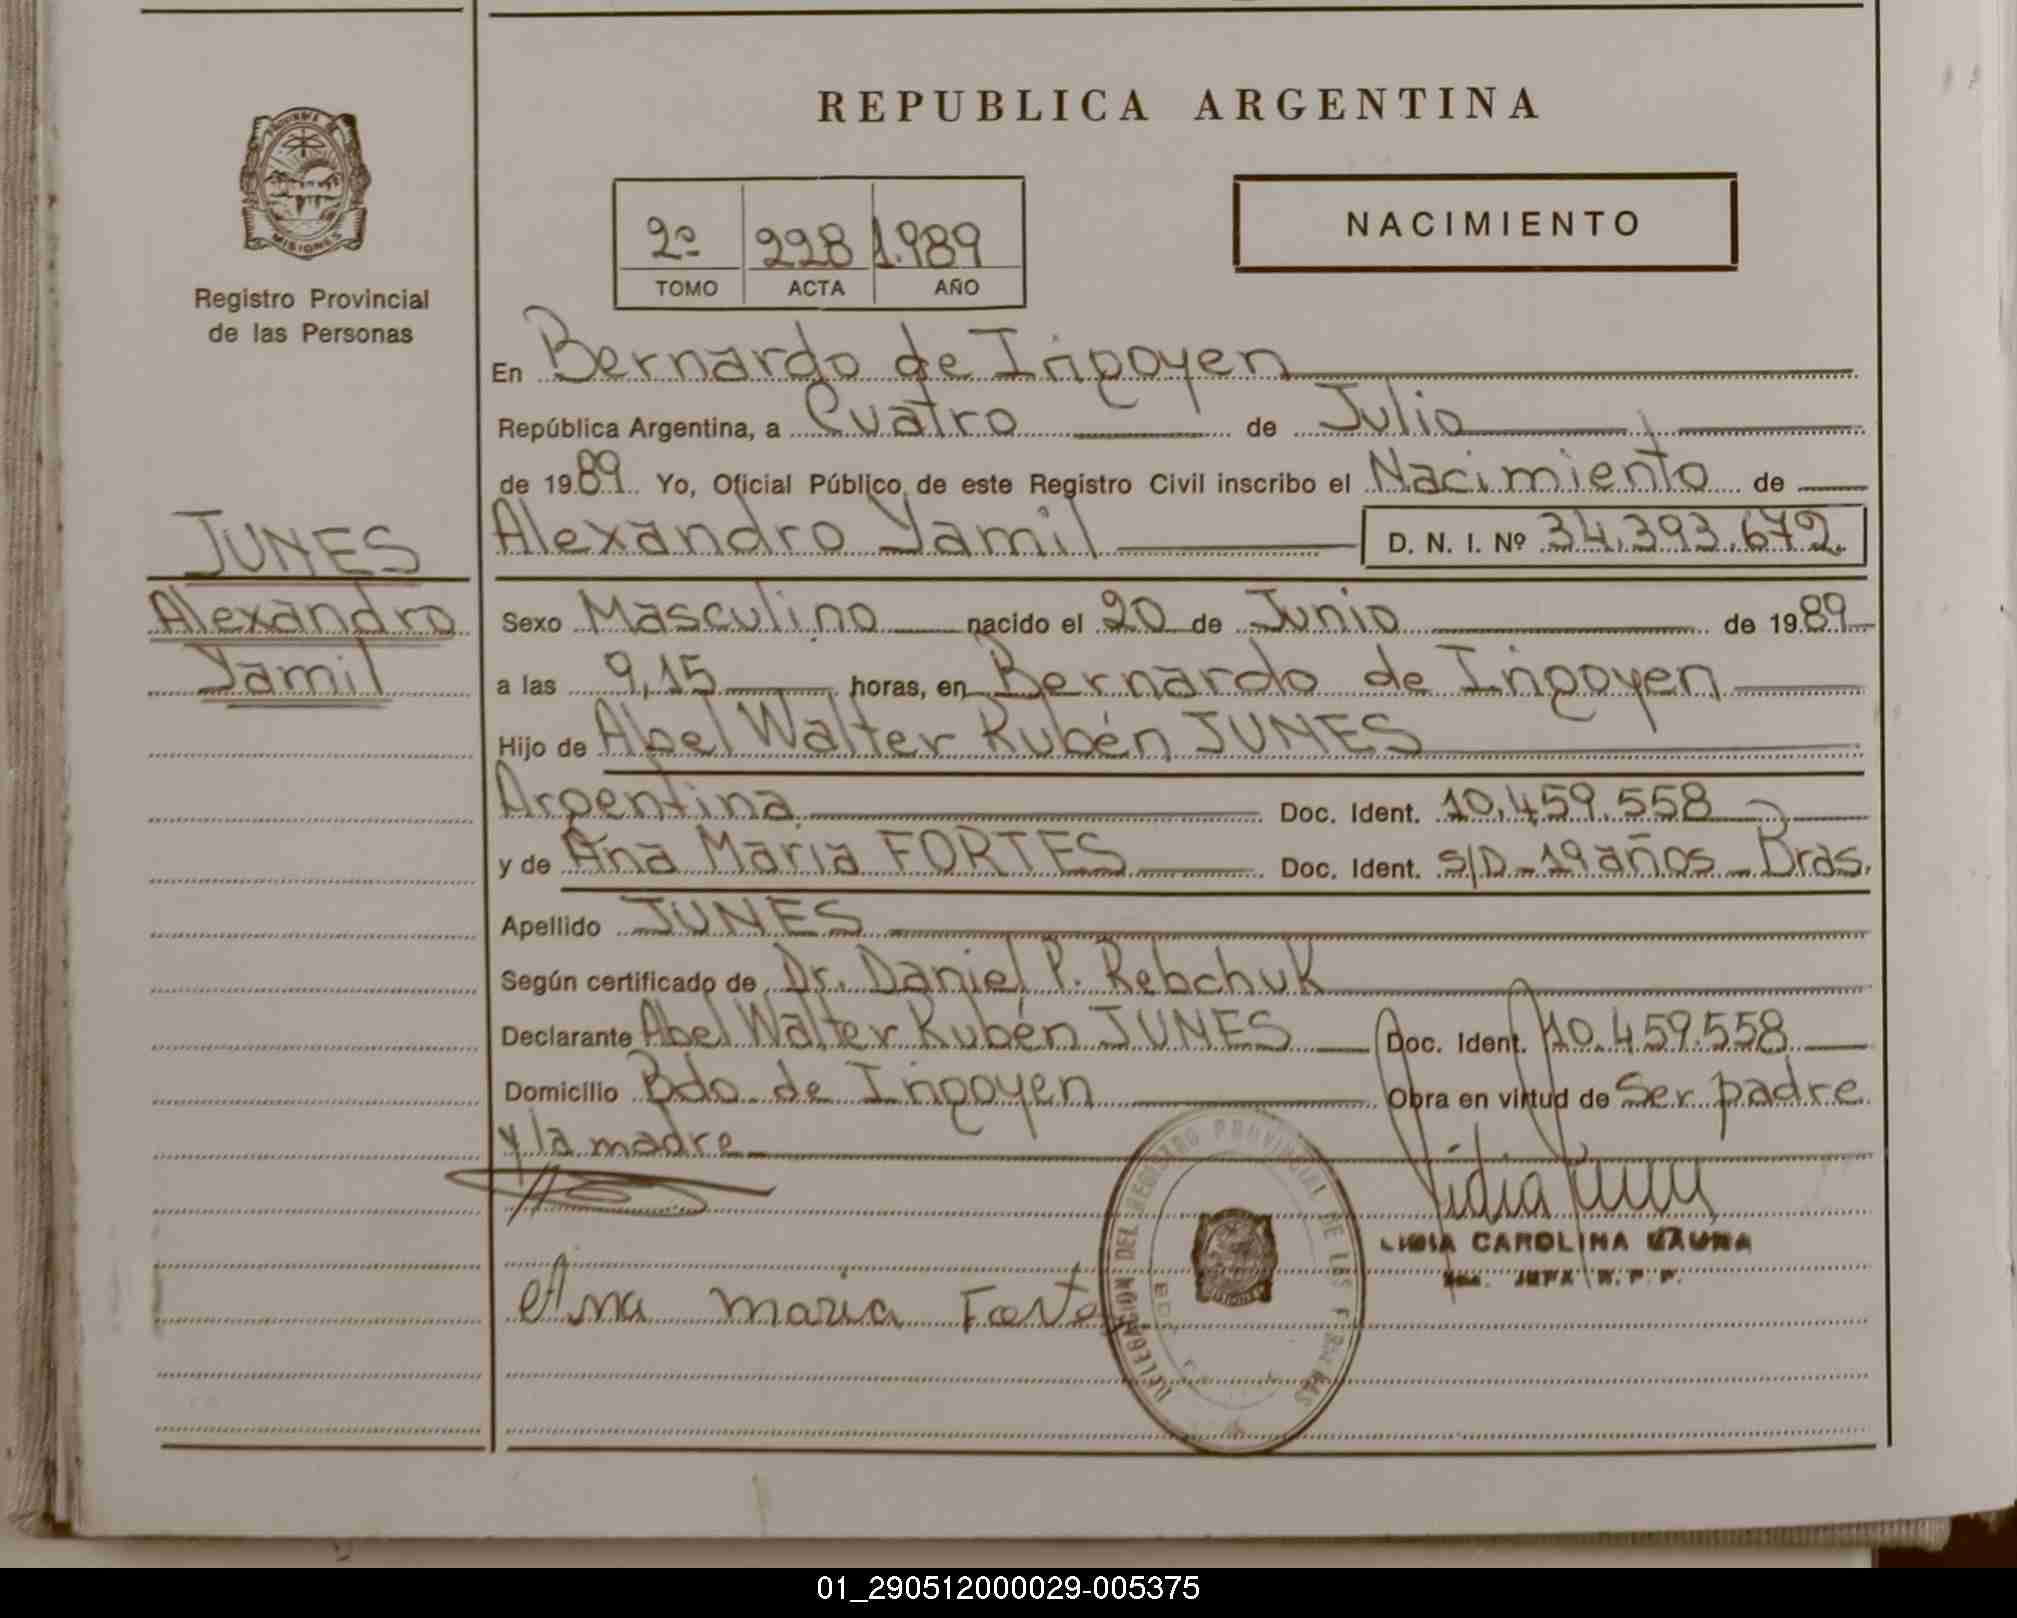 REPUBLICA ARGENTINA
PROVINCIA DE
MISIONES
Registro Provincial
de las Personas
NACIMIENTO
2º 228 1.989
TOMO ACTA AÑO
En Bernardo de Irigoyen
República Argentina, a Cuatro de Julio
de 1989 Yo, Oficial Público de este Registro Civil inscribo el Nacimiento de
Alexandro Yamil D. N. I. Nº 34.393.672.
JUNES
Alexandro
Yamil
Sexo Masculino nacido el 20 de Junio de 1989
a las 9,15 horas, en Bernardo de Irigoyen
Hijo de Abel Walter Rubén JUNES
Argentina Doc. Ident. 10.459.558
y de Ana Maria FORTES Doc. Ident. S/D - 19 años - Bras.
Apellido JUNES
Según certificado de Dr. Daniel P. Rebchuk
Declarante Abel Walter Rubén JUNES Doc. Ident. 10.459.558
Domicilio Bdo de Irigoyen Obra en virtud de Ser padre
y la madre
DELEGACION DEL REGISTRO PROVINCIAL DE LAS PERSONAS
LIDIA CAROLINA
Ana maria Fortes
01_290512000029-005375